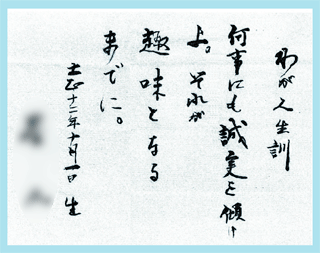 わが人生訓
何事にも誠実を傾け
よ。それが
趣味となる
までに。
大正十二年十月一日生